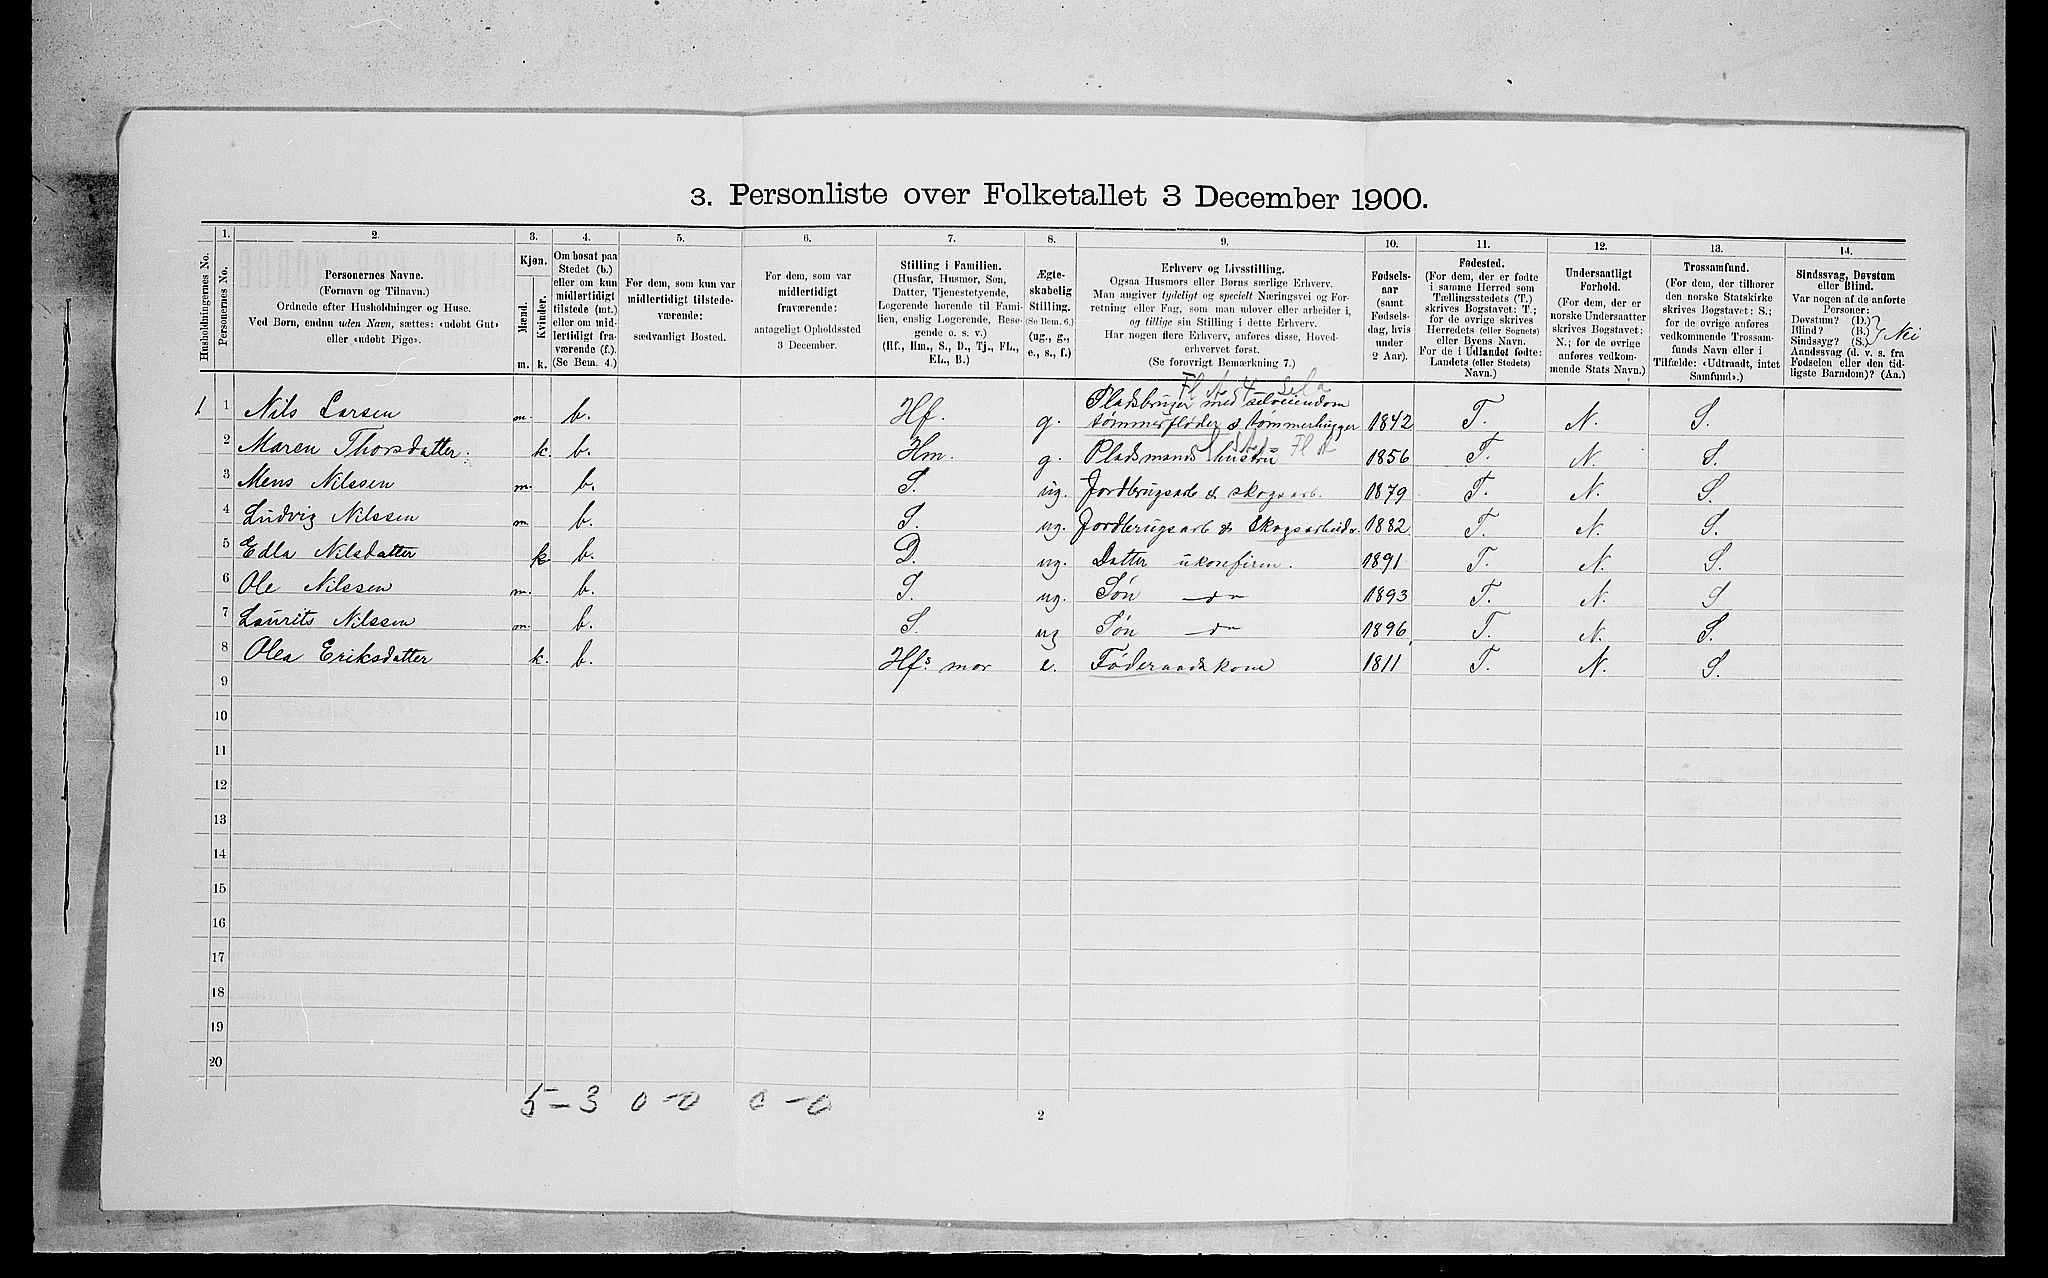 3. Personliste over Folketallet 3 December 1900.
1. 2. 3. 4. 5. 6. 7. 8. 9. 10. 11. 12. 13. 14.
Husholdningernes No.
Personernes No.
Personernes Navne.
(Fornavn og Tilnavn.)
Ordnede efter Husholdninger og Huse.
Ved Børn, endnu uden Navn, sættes: «udøbt Gut»
eller «udøbt Pige».
Kjøn.
Mænd.
Kvinder.
m. k.
Om bosat paa
Stedet (b.)
eller om kun
midlertidigt
tilstede (mt.)
eller om mid-
lertidigt fra-
værende (f.).
(Se Bem. 4.)
For dem, som kun var
midlertidigt tilstede-
værende:
sædvanligt Bosted.
For dem, som var
midlertidigt
fraværende:
antageligt Opholdssted
3 December.
Stilling i Familien.
(Husfar, Husmor, Søn,
Datter, Tjenestetyende,
Logerende hørende til Fami-
lien, enslig Logerende, Besø-
gende o. s. v.)
(Hf., Hm., S., D., Tj., FL.,
EL., B.)
Ægte-
skabelig
Stilling.
(Se Bem. 6.)
(ug., g.,
e., s., f.)
Erhverv og Livsstilling.
Ogsaa Husmors eller Børns særlige Erhverv.
Man angiver tydeligt og specielt Næringsvei og For-
retning eller Fag, som man udøver eller arbeider i,
og tillige sin Stilling i dette Erhverv.
Har nogen flere Erhverv, anføres disse, Hoved-
erhvervet først.
(Se forøvrigt Bemærkning 7.)
Fødsels-
aar
(samt
Fødsels-
dag, hvis
under
2 Aar).
Fødested.
(For dem, der er fødte
i samme Herred som
Tællingsstedets (T.)
skrives Bogstavet: T.;
for de øvrige skrives
Herredets (eller Sognets)
eller Byens Navn.
For de i Udlandet fødte:
Landets (eller Stedets)
Navn.)
Undersaatligt
Forhold.
(For dem, der er
norske Undersaatter
skrives Bogstavet:
N.; for de øvrige
anføres vedkom-
mende Stats Navn.)
Trossamfund.
(For dem, der tilhører
den norske Statskirke
skrives Bogstavet: S.;
for de øvrige anføres
vedkommende Trossam-
funds Navn eller i
Tilfælde: «Udtraadt, intet
Samfund».)
Sindssvag, Døvstum
eller Blind.
Var nogen af de anførte
Personer:
Døvstum? (D.)
Blind? (B.)
Sindssyg? (S.)
Aandssvag (d. v. s. fra
Fødselen eller den tid-
ligste Barndom)? (Aa.)
Nei
1 1 Nils Larsen m. b. Hf. g. Pladsbruger med selveiendom
tømmerfløder & tømmerhugger 1842 T. N. S.
2 Maren Thorsdatter k. b. Hm. g. Pladsmands hustru 1856 T. N. S.
3 Mens Nilssen m. b. S. ug. Jordbrugsarb & skogsarb. 1879 T. N. S.
4 Ludvig Nilssen m. b. S. ug. Jordbrugsarb & Skogsarbeider 1882 T. N. S.
5 Edla Nilsdatter k b. D. ug. Datter ukonfirm. 1891 T. N. S.
6 Ole Nilssen m. b. S. ug. Søn — do 1893 T. N. S
7 Laurits Nilssen m. b. S. ug Søn — do 1896 T. N. S.
8 Olea Eriksdatter k. b. Hfs mor e. Føderaadskone 1811 T. N. S.
9
10
11
12
13
14
15
16
17
18
19
20
5-3 0-0 0-0
2